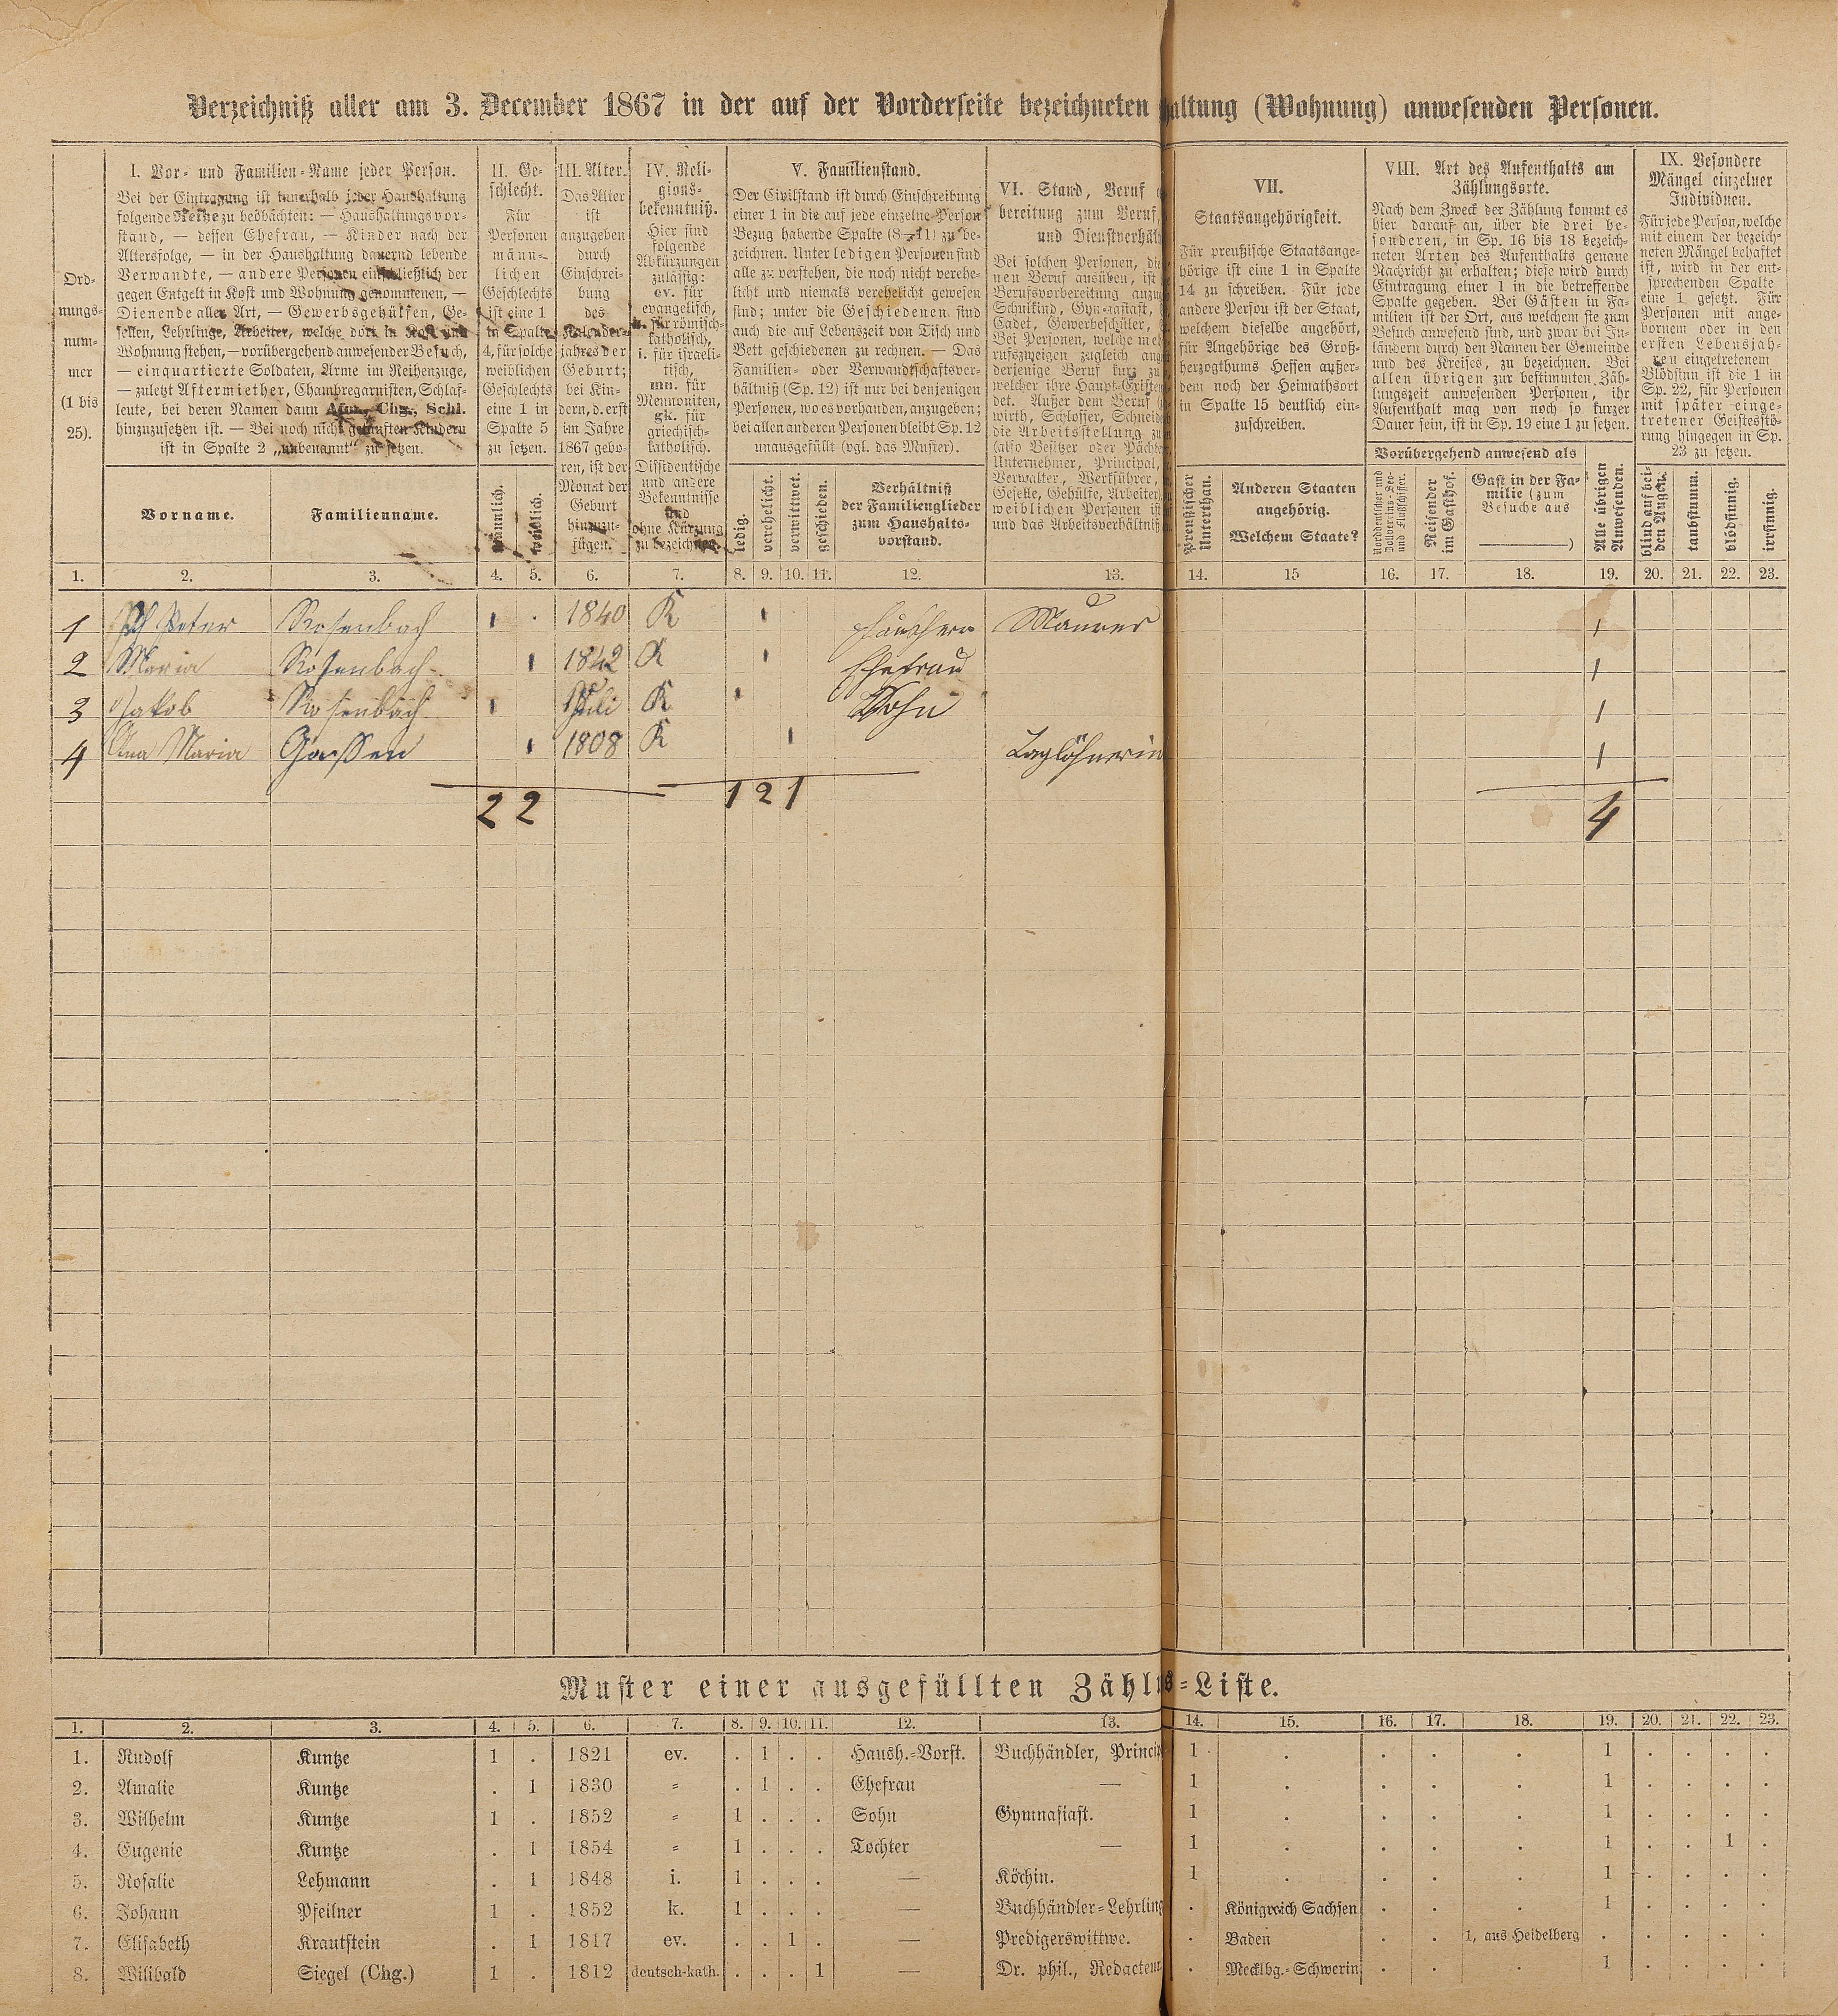 Verzeichniß aller am 3. December 1867 in der auf der Vorderseite bezeichneten haltung (Wohnung) anwesenden Personen.
Ord-
nungs-
num-
mer
(1 bis
25).
I. Vor- und Familien-Name jeder Person.
Bei der Eintragung ist innerhalb jeder Haushaltung
folgende Reihe zu beobachten: — Haushaltungsvor-
stand, — dessen Ehefrau, — Kinder nach der
Altersfolge, — in der Haushaltung dauernd lebende
Verwandte, — andere Personen einschließlich der
gegen Entgelt in Kost und Wohnung genommenen, —
Dienende aller Art, — Gewerbsgehülfen, Ge-
sellen, Lehrlinge, Arbeiter, welche dort in Kost und
Wohnung stehen, — vorübergehend anwesender Besuch,
— einquartierte Soldaten, Arme im Reihenzuge,
— zuletzt Aftermiether, Chambregarnisten, Schlaf-
leute, bei deren Namen dann Afm., Chg., Schl.
hinzuzusetzen ist. — Bei noch nicht getauften Kindern
ist in Spalte 2 „unbenannt“ zu setzen.
Vorname.
Familienname.
II. Ge-
schlecht.
Für
Personen
männ-
lichen
Geschlechts
ist eine 1
in Spalte
4, für solche
weiblichen
Geschlechts
eine 1 in
Spalte 5
zu setzen.
männlich.
weiblich.
III. Alter.
Das Alter
ist
anzugeben
durch
Einschrei-
bung
des
Kalender-
jahres der
Geburt;
bei Kin-
dern, d. erst
im Jahre
1867 gebo-
ren, ist der
Monat der
Geburt
hinzuzu-
fügen.
IV. Reli-
gions-
bekenntniß.
Hier sind
folgende
Abkürzungen
zulässig:
ev. für
evangelisch,
k. für römisch-
katholisch,
i. für israeli-
tisch,
mn. für
Mennoniten,
gk. für
griechisch-
katholisch.
Dissidentische
und andere
Bekenntnisse
sind
ohne Kürzung
zu bezeichnen.
V. Familienstand.
Der Civilstand ist durch Einschreibung
einer 1 in die auf jede einzelne Person
Bezug habende Spalte (8—11) zu be-
zeichnen. Unter ledigen Personen sind
alle zu verstehen, die noch nicht verehe-
licht und niemals verehelicht gewesen
sind; unter die Geschiedenen sind
auch die auf Lebenszeit von Tisch und
Bett geschiedenen zu rechnen. — Das
Familien- oder Verwandtschaftsver-
hältniß (Sp. 12) ist nur bei denjenigen
Personen, wo es vorhanden, anzugeben;
bei allen anderen Personen bleibt Sp. 12
unausgefüllt (vgl. das Muster).
ledig.
verehelicht.
verwittwet.
geschieden.
Verhältniß
der Familienglieder
zum Haushalts-
vorstand.
VI. Stand, Beruf
bereitung zum Beruf,
und Dienstverhäl
Bei solchen Personen, die
nen Beruf ausüben, ist
Berufsvorbereitung anzu
Schulkind, Gymnasiast,
Cadet, Gewerbeschüler,
Bei Personen, welche meh
rufszweigen zugleich ang
derjenige Beruf kurz zu
welcher ihre Haupt-Existen
det. Außer dem Beruf
wirth, Schlosser, Schneide
die Arbeitsstellung zu
(also Besitzer oder Pächter
Unternehmer, Principal,
Verwalter, Werkführer,
Geselle, Gehülfe, Arbeiter)
weiblichen Personen ist
und das Arbeitsverhältniß
VII.
Staatsangehörigkeit.
Für preußische Staatsange-
hörige ist eine 1 in Spalte
14 zu schreiben. Für jede
andere Person ist der Staat,
welchem dieselbe angehört,
für Angehörige des Groß-
herzogthums Hessen außer-
dem noch der Heimathsort
in Spalte 15 deutlich ein-
zuschreiben.
Preußischer
Unterthan.
Anderen Staaten
angehörig.
Welchem Staate?
VIII. Art des Aufenthalts am
Zählungsorte.
Nach dem Zweck der Zählung kommt es
hier darauf an, über die drei be-
sonderen, in Sp. 16 bis 18 bezeich-
neten Arten des Aufenthalts genaue
Nachricht zu erhalten; diese wird durch
Eintragung einer 1 in die betreffende
Spalte gegeben. Bei Gästen in Fa-
milien ist der Ort, aus welchem sie zum
Besuch anwesend sind, und zwar bei In-
ländern durch den Namen der Gemeinde
und des Kreises, zu bezeichnen. Bei
allen übrigen zur bestimmten Zäh-
lungszeit anwesenden Personen, ihr
Aufenthalt mag von noch so kurzer
Dauer sein, ist in Sp. 19 eine 1 zu setzen.
Vorübergehend anwesend als
Norddeutscher und
Zollvereins-See-
und Flußschiffer.
Reisender
im Gasthof.
Gast in der Fa-
milie (zum
Besuche aus
)
Alle übrigen
Anwesenden.
IX. Besondere
Mängel einzelner
Individuen.
Für jede Person, welche
mit einem der bezeich-
neten Mängel behaftet
ist, wird in der ent-
sprechenden Spalte
eine 1 gesetzt. Für
Personen mit ange-
bornem oder in den
ersten Lebensjah-
ren eingetretenem
Blödsinn ist die 1 in
Sp. 22, für Personen
mit später einge-
tretener Geistesstö-
rung hingegen in Sp.
23 zu setzen.
blind auf bei-
den Augen.
taubstumm.
blödsinnig.
irrsinnig.
1. 2. 3. 4. 5. 6. 7. 8. 9. 10. 11. 12. 13. 14. 15 16. 17. 18. 19. 20. 21. 22. 23.
1 Peter Rosenbach 1 . 1840 K 1 Haushherr Maurer 1
2 Maria Rosenbach 1 1842 K 1 Ehefrau 1
3 Jakob Rosenbach 1 Juli K 1 Sohn 1
4 Ana Maria Gassen 1 1808 K 1 Taglöhnerin 1
2 2 1 2 1 4
Muster einer ausgefüllten Zähl s-Liste.
1. 2. 3. 4. 5. 6. 7. 8. 9. 10. 11. 12. 13. 14. 15. 16. 17. 18. 19. 20. 21. 22. 23.
1. Rudolf Kuntze 1 . 1821 ev. . 1 . . Haush.-Vorst. Buchhändler, Princip 1 . . . . 1 . . . .
2. Amalie Kuntze . 1 1830 " . 1 . . Ehefrau — 1 . . . . 1 . . . .
3. Wilhelm Kuntze 1 . 1852 " 1 . . . Sohn Gymnasiast. 1 . . . . 1 . . . .
4. Eugenie Kuntze . 1 1854 " 1 . . . Tochter — 1 . . . . 1 . . 1 .
5. Rosalie Lehmann . 1 1848 i. 1 . . . — Köchin. 1 . . . . 1 . . . .
6. Johann Pfeilner 1 . 1852 k. 1 . . . — Buchhändler-Lehrling . Königreich Sachsen . . . 1 . . . .
7. Elisabeth Krautstein . 1 1817 ev. . . 1 . — Predigerswittwe. . Baden . . 1, aus Heidelberg . . . . .
8. Wilibald Siegel (Chg.) 1 . 1812 deutsch-kath. . . . 1 — Dr. phil., Redacteur . Mecklbg.-Schwerin . . . 1 . . . .